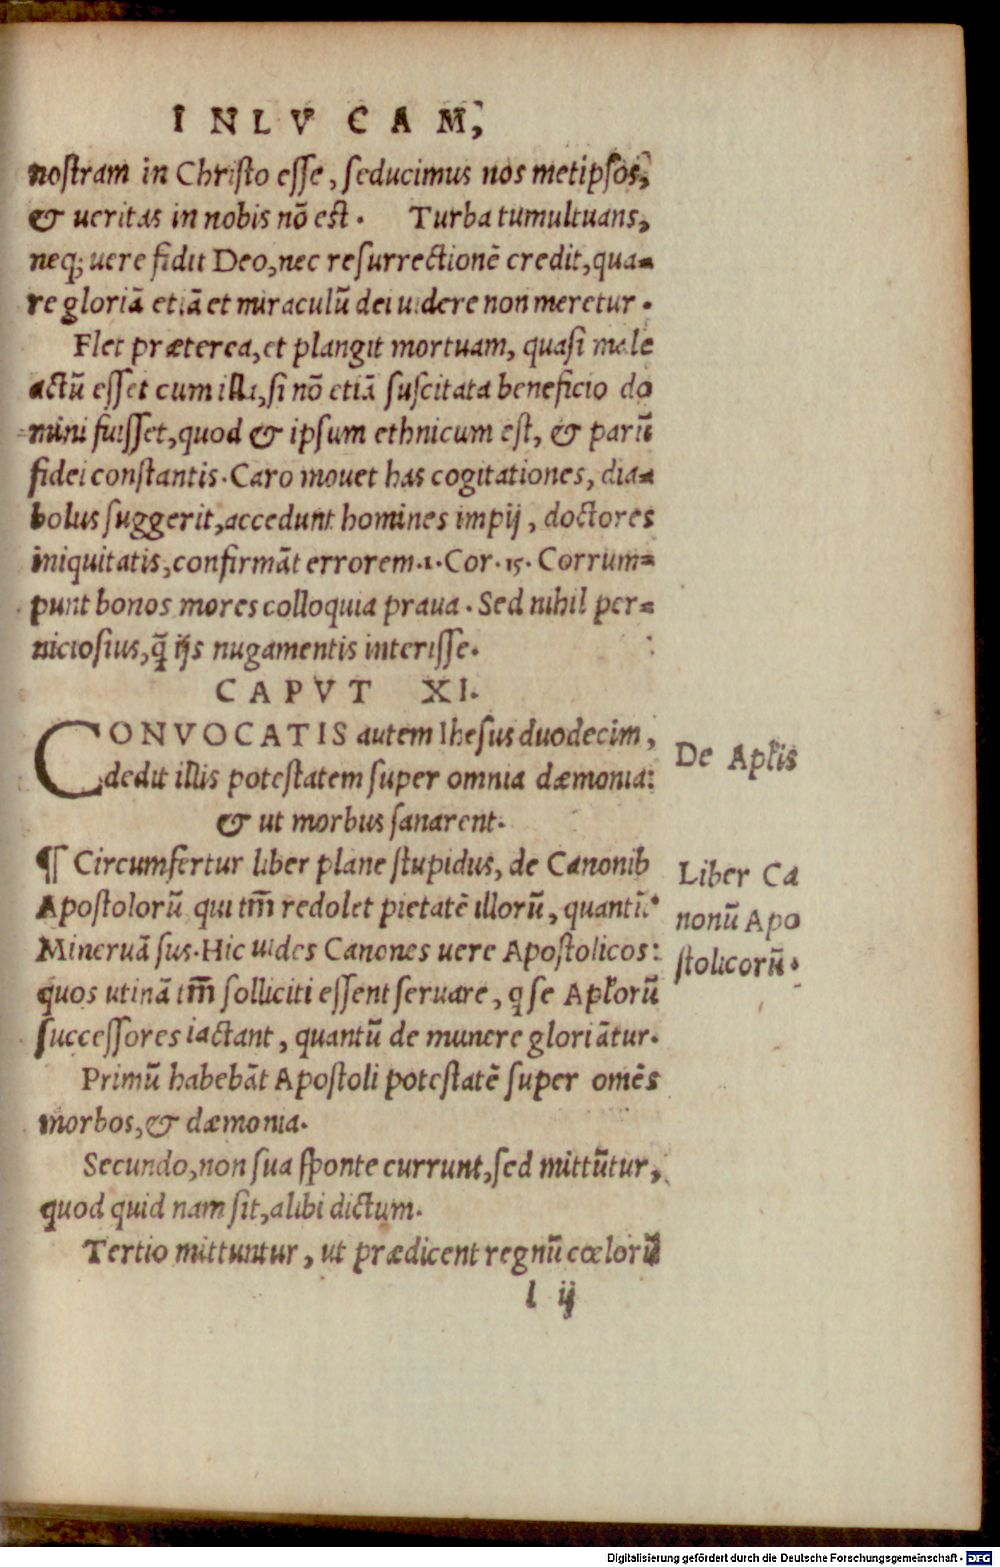 IN LVCAM,
noſtram in Chriſto eſſe, ſeducimus nos metipſos,
& ueritas in nobis nō eſt. Turba tumultuans,
neq; uere fidit Deo, nec reſurrectionē credit, qua=
re gloriā etiā et miraculū dei uidere non meretur.
Flet præterea, et plangit mortuam, quaſi male
actū eſſet cum illa, ſi nō etiā ſuſcitata beneficio do
mini fuiſſet, quod & ipſum ethnicum eſt, & parū
fidei conſtantis. Caro mouet has cogitationes, dia=
bolus ſuggerit, accedunt homines impij, doctores
iniquitatis, confirmāt errorem. 1. Cor. 15. Corrum=
punt bonos mores colloquia praua. Sed nihil per=
nicioſius, q̄ ijs nugamentis intereſſe.
CAPVT XI.
CONVOCATIS autem Iheſus duodecim,
dedit illis poteſtatem ſuper omnia dæmonia:
& ut morbus ſanarent.
De Apłis
¶ Circumfertur liber plane ſtupidus, de Canonib
Apoſtolorū qui tm̄ redolet pietatē illorū, quantū
Mineruā ſus. Hic uides Canones uere Apoſtolicos:
quos utinā tm̄ ſolliciti eſſent ſeruare, q ſe Apłorū
ſucceſſores iactant, quantū de munere gloriātur.
Liber Ca
nonū Apo
ſtolicorū.
Primū habebāt Apoſtoli poteſtatē ſuper omēs
morbos, & dæmonia.
Secundo, non ſua ſponte currunt, ſed mittūtur,
quod quid nam ſit, alibi dictum.
Tertio mittuntur, ut prædicent regnū cœlorū
l ij
Digitalisierung gefördert durch die Deutsche Forschungsgemeinschaft - DFG